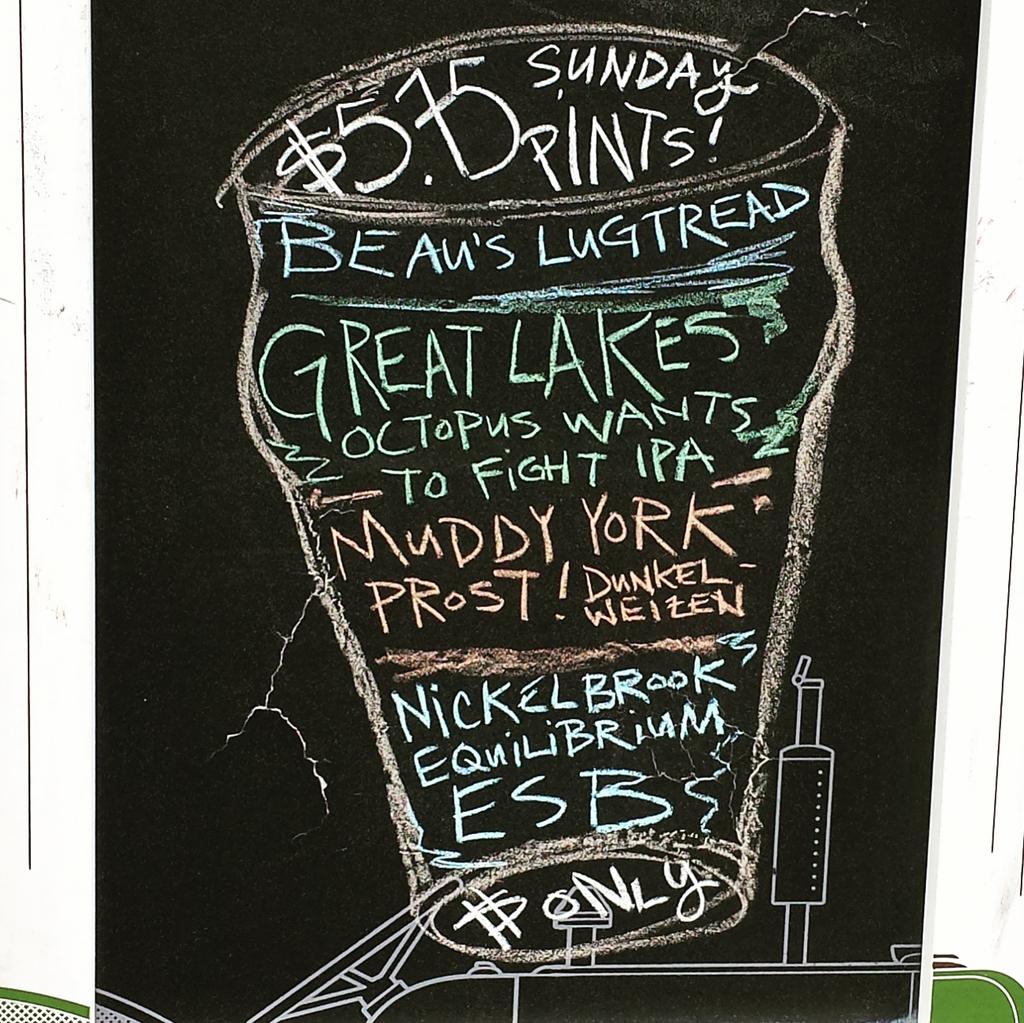 $5.75 SUNDAY
PINTS!
BEAU'S LUGTREAD
GREAT LAKES
OCTOPUS WANTS
TO FIGHT IPA
MUDDY YORK
PROST! DUNKEL-
WEIZEN
NICKELBROOK
EQUILIBRIUM
ESB
$ ONLY